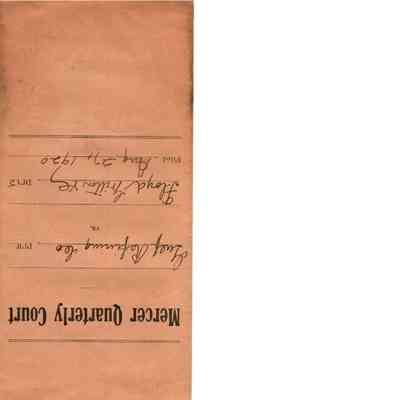 Mercer Quarterly Court
Gulf Refining Co Pl'ff.
vs.
Floyd Deft.
Filed Aug 27, 1920